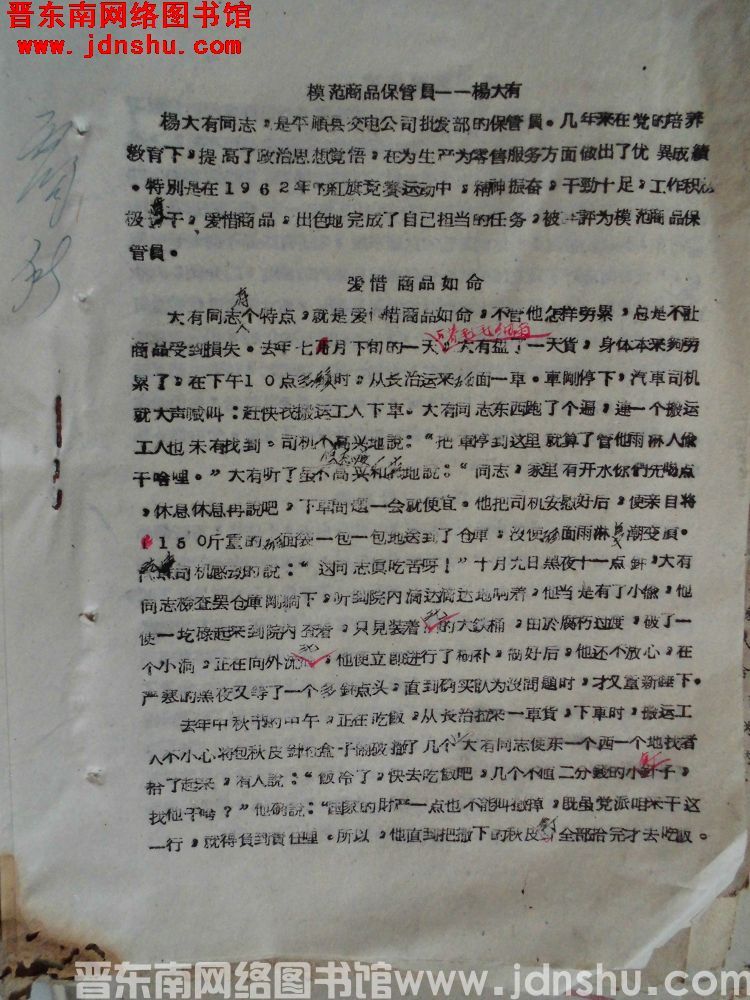 晋东南网络图书馆
www.jdnshu.com
模范商品保管員——楊大有
楊大有同志，是平順县交电公司批发部的保管員。几年来在党的培养
教育下，提高了政治思想覚悟，在为生产为零售服务方面做出了优異成績
。特別是在1962年的紅旗竞賽运动中，精神振奋，干勁十足，工作积
极 干，爱惜商品，出色地完成了自己担当的任务，被評为模范商品保
管員。
爱惜商品如命
大有同志有个特点，就是爱惜商品如命，不管他怎样劳累，总是不让
商品受到損失。去年七月下旬的一天，大有盘了一天貨，身体本来夠劳
累了，在下午10点多鈡时，从长治运来 面一車。車剛停下，汽車司机
就大声喊叫：赶快找搬运工人下車。大有同志东西跑了个遍，連一个搬运
工人也未有找到。司机不高兴地說：“把車停到这里就算了管他雨淋人偸
干啥哩。”大有听了 地說：“同志，家里有开水你們先喝点
，休息休息再說吧，下車問題一会就便宜。他把司机安慰好后，便亲自将
150斤重的 面袋一包一包地送到了仓庫，沒使 面雨淋 潮变質。
汽車司机感动的說：“这同志真吃苦呀！”十月九日黑夜十一点鈡，大有
同志檢查罢仓庫剛躺下，听到院内滴达滴达地响着，他当是有了小偸，他
便一圪碌起来到院内查看，只見装着 的大鉄桶，由於腐朽过度，破了一
个小洞，正在向外流 ，他便立卽进行了糊补，糊好后，他还不放心，在
严寒的黑夜又等了一个多鈡点头，直到确实认为沒問題时，才又重新睡下。
去年中秋节的中午，正在吃飯，从长治拉来一車貨，下車时，搬运工
人不小心将包秋皮釘的盒子闹破撒了几个，大有同志便东一个西一个地找着
拾了起来，有人說：“飯冷了，快去吃飯吧，几个不值二分錢的小釘子，
找他干啥？”他确說：“國家的財产一点也不能叫撒掉，既虽党派咱来干这
一行，就得負到責任哩。所以，他直到把撒下的秋皮釘全部拾完才去吃飯。
晋东南网络图书馆www.jdnshu.com